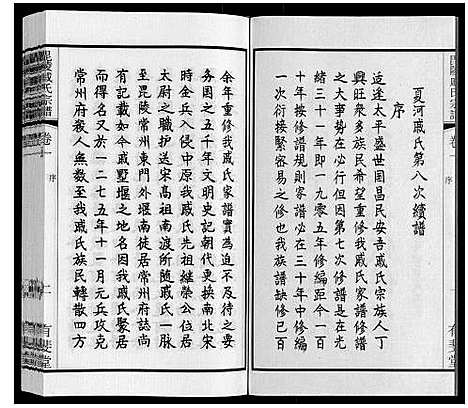 夏河戚氏第八次續譜
序
适逢太平盛世國昌民安吾戚氏宗族人丁
興旺眾多族民希望重修我戚氏家譜續修
之大事勢在必行但因第七次修譜是在光
緒三十一年即一九零五年修編距今一百
零六年按修譜規則家譜必在三十年中修編
一次衍接緊容易之修也我族譜缺修已百
余年重修我戚氏家譜實為迫不及待之要
務國之五千年文明史記朝代更換南北宋
時金兵入侵中原我戚氏先祖繼榮公位居
太尉之職護送宋高祖南渡所隨戚氏一脉
至毗陵常州東門外堰南徒居常州府誌尚
有記載如今戚墅堰之地名因我戚氏聚居
而得名又于一二七五年十一月元兵攻克
常州府殺人無數至我戚氏族民轉散四方
毗陵戚氏宗譜
卷一
序
有斐堂
毗陵戚氏宗譜
卷一
序
一
有斐堂